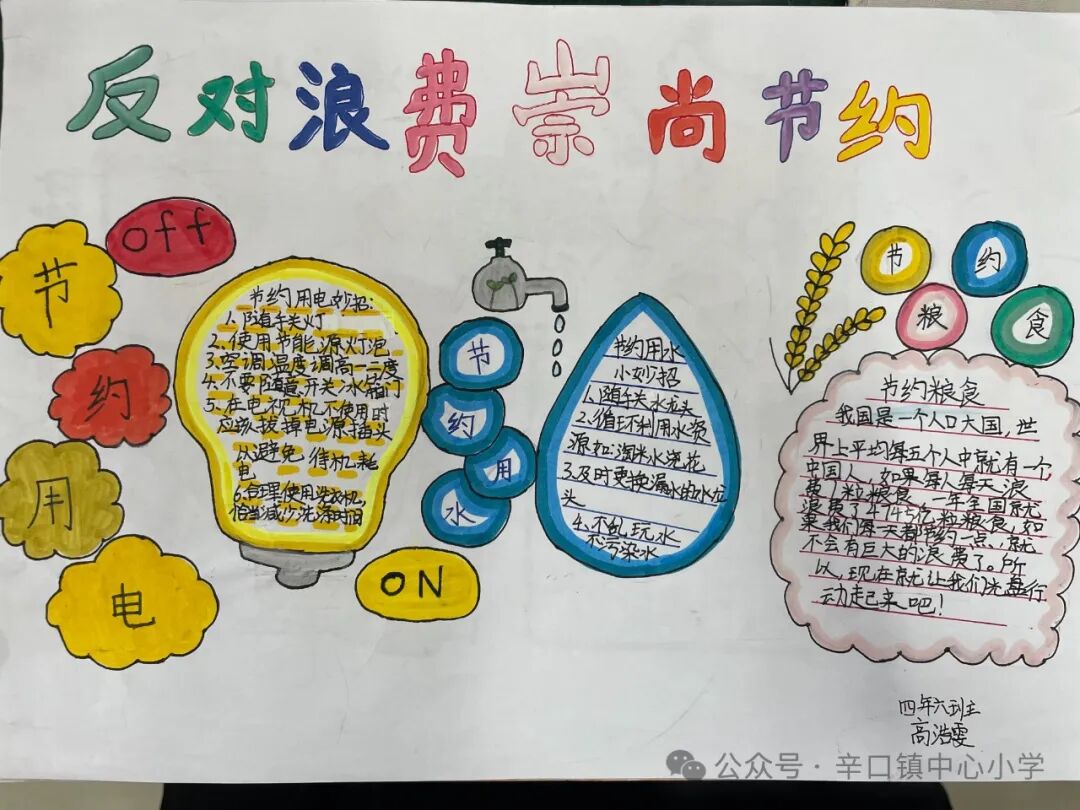 反对浪费崇尚节约
off
节
约
用
电
节约用电妙招:
1.随手关灯
2.使用节能源灯泡
3.空调温度调高一二度
4.不要随意开关冰箱门
5.在电视机不使用时
应该拔掉电源插头
从避免待机耗
电
6.合理使用洗衣机,
恰当减少洗涤时间
ON
节
约
用
水
节约用水
小妙招
1.随手关水龙头
2.循环利用水资
源如淘米水浇花
3.及时更换漏水的水龙
头
4.不乱玩水
不污染水
节
约
粮
食
节约粮食
我国是一个人口大国,世
界上平均每五个人中就有一个
中国人,如果每人每天浪
费一粒粮食,一年全国就
浪费了4745亿粒粮食,如
果我们每天都节约一点,就
不会有巨大的浪费了。所
以,现在就让我们光盘行
动起来吧!
四年六班
高浩雯
公众号·辛口镇中心小学